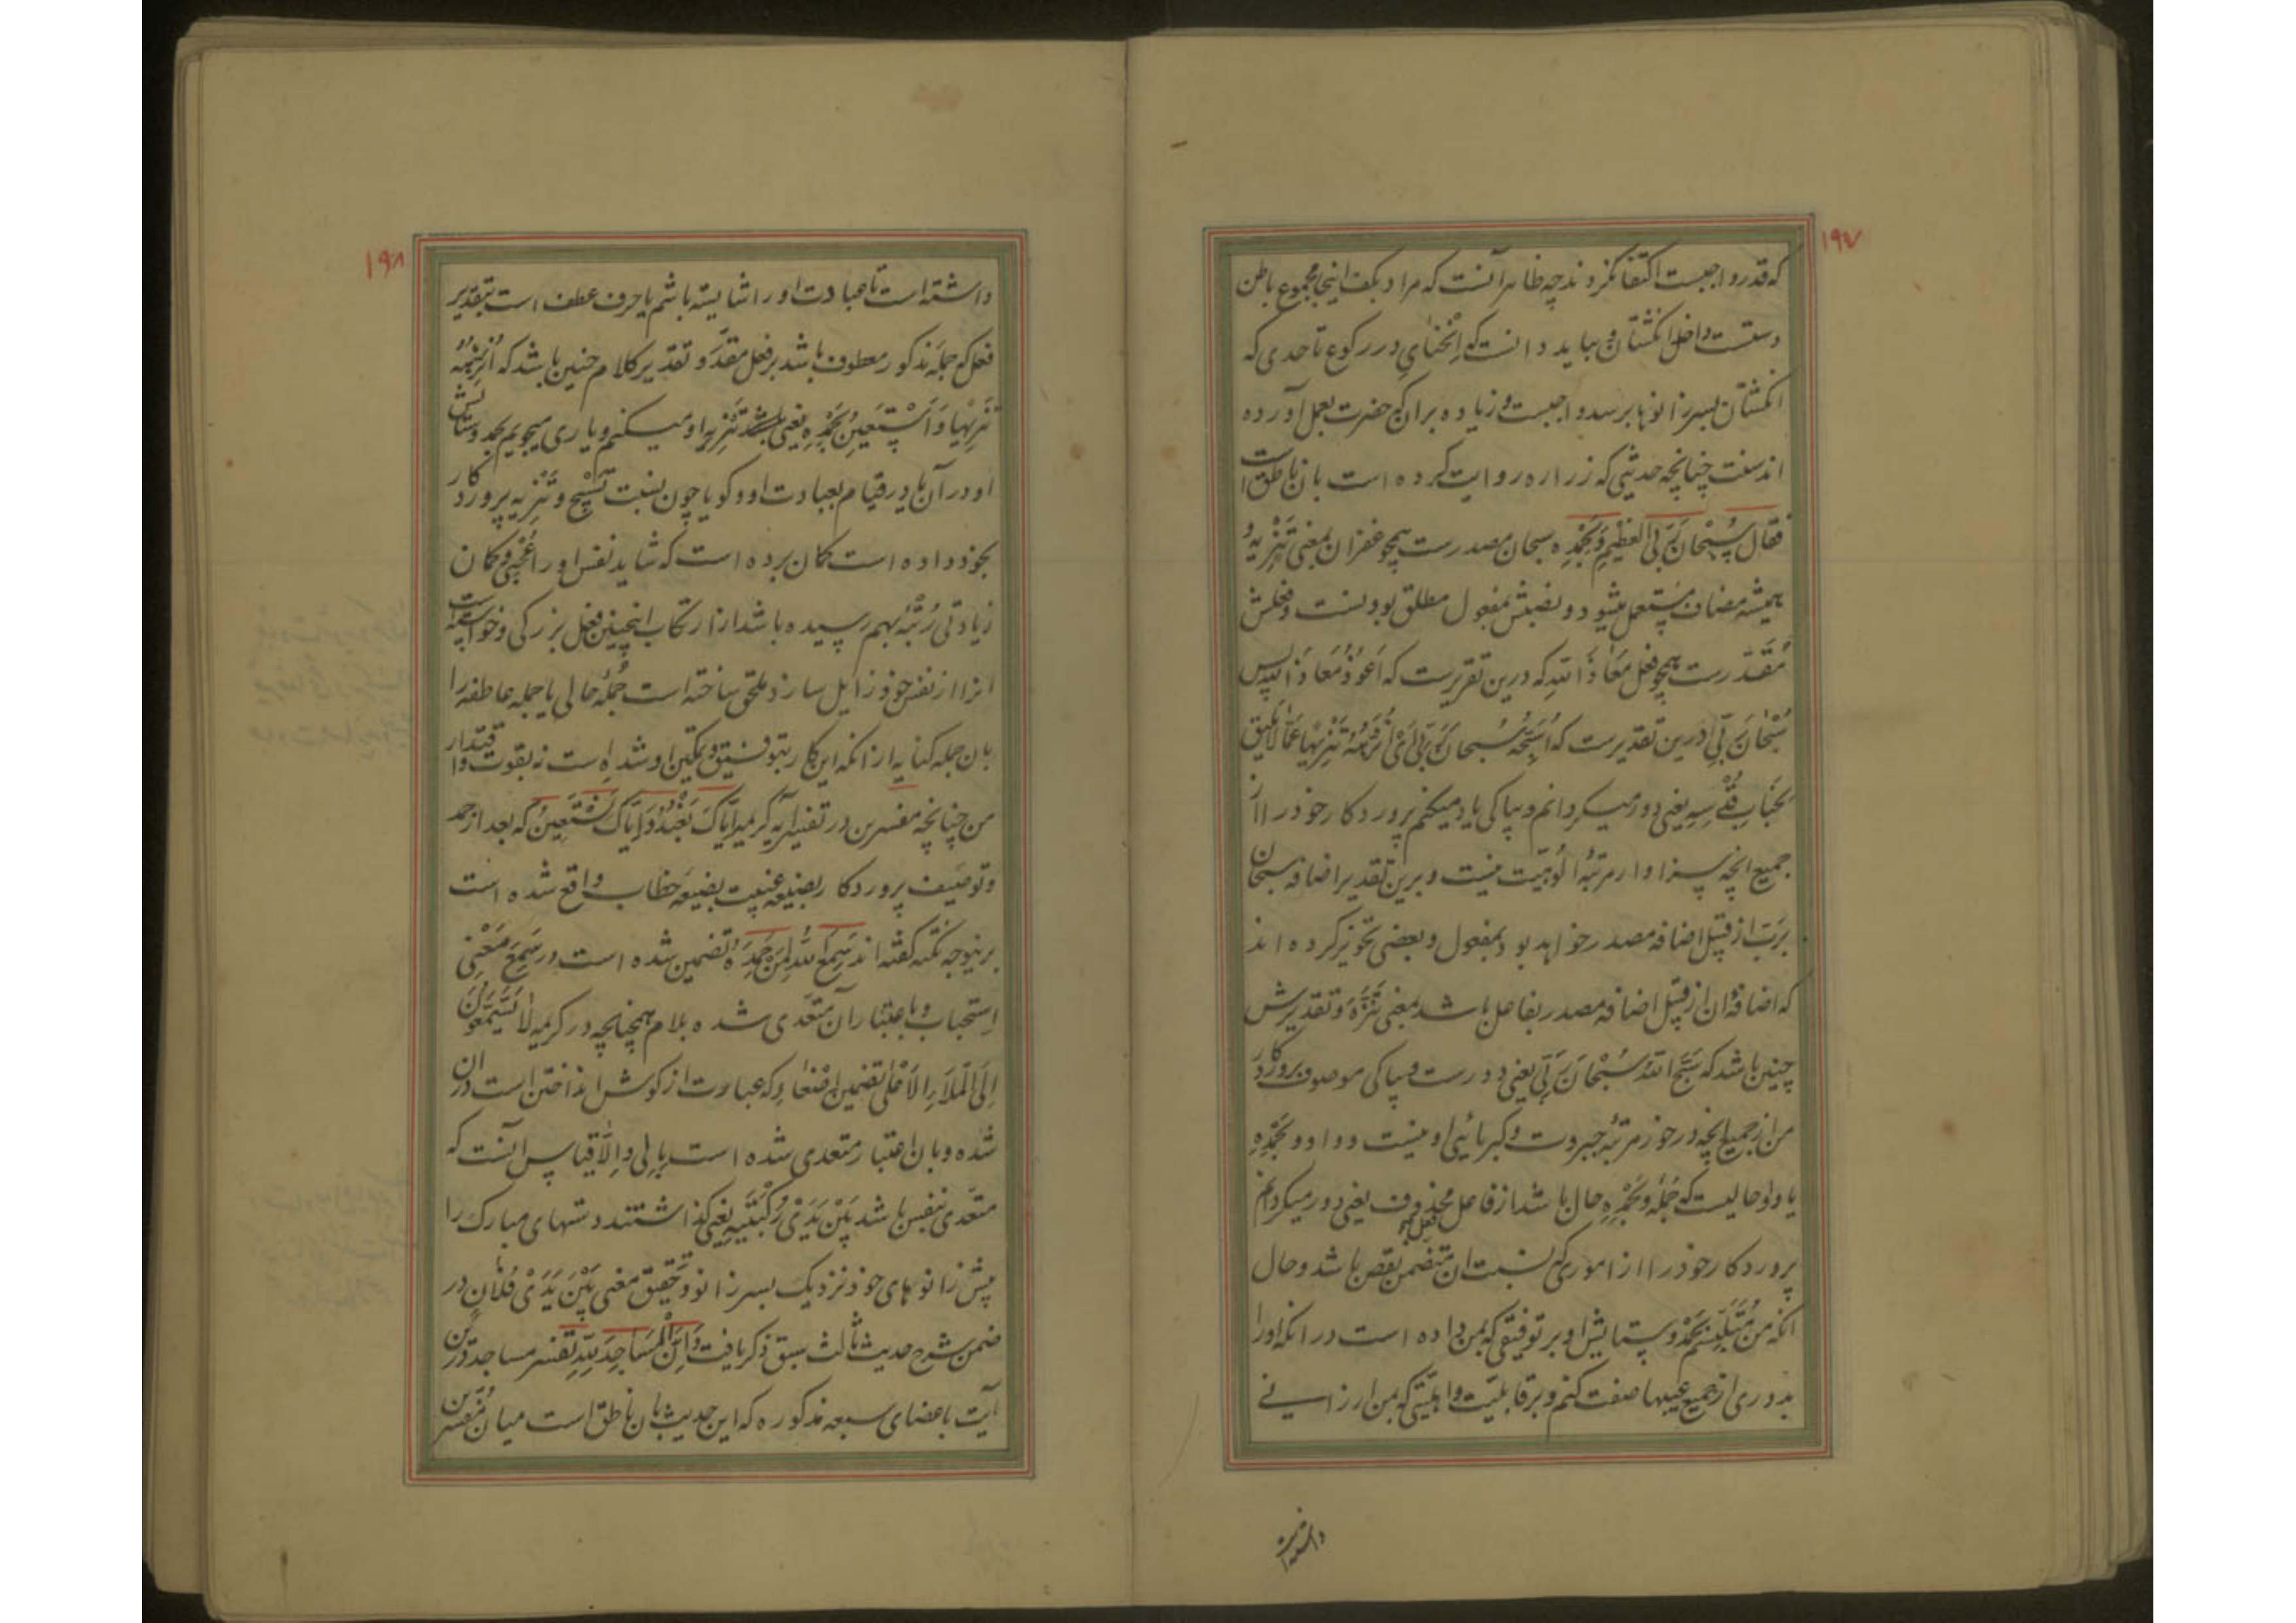 ۱۹۷
که قدر واجبست اکتفا نکردند چه ظاهرا آنست که مراد بکف اینجا مجموع باطن
دستست و داخل انکشتان و بباید دانست که اِنْحنایِ در رکوع تا حدی که
انکشتان بسر زانوها برسد واجبست و زیاده بران که حضرت بعمل آورده
اند سنت چنانچه حدیثی که زراره روایت کرده است بان ناطق است
فقال سُبْحانَ رَبِّیَ العَظِیْمِ وَبِحَمْدِه سبحان مصدرست همچو غفران بمعنی تَنْزِیهُ
همیشه مضاف مستعمل میشود و نصبش بمفعول مطلق بودنست و فعلش
مُقَدَّرست همچو فعل مَعَاذَ اللّهِ که درین تقریرست که اَعُوذُ مَعَاذَ اللّهِ پس
سُبْحَانَ رَبِّی درین تقدیرست که اُسَبِّحُهُ سُبحانَ رَبِّی اَیْ اُنَزِّهُهُ تَنْزِیْهًا عَمَّا لَا یَلِیقُ
بجَنَابِ قُدْسِهِ یعنی دور میکردانم و بپاکی یاد میکنم پروردکار خود را از
جمیع انچه سزاوار مرتبهٔ اُلُوهِیّت نیست و برین تقدیر اضافه سبحان
برَبّ از قبیل اضافه مصدر خواهد بود بمفعول و بعضی تجویز کرده اند
که اضافهٔ ان از قبیل اضافه مصدر بفاعل باشد بمعنی تَنَزَّهَ و تقدیرش
چنین باشد که سَبَّحَ اللّهُ سُبْحَانَ رَبِّی یعنی دورست و بپاکی موصوف پروردکار
من از جمیع انچه در خور مرتبهٔ جبروت و کبریائیِ او نیست و واو وَبِحَمْدِهِ
یا واو حالیست که جُملهٔ وَبِحَمْدِهِ حال باشد از فاعل فعل محذوف یعنی دور میکردانم
پروردکار خود را از اموری که نسبت ان متضمن نقص باشد و حال
انکه من مُتَلَبِّسم بحَمْد و ستایش او بر توفیقی که بمن داده است در انکه او را
بدوری از جمیع عیبها صفت کنم و بر قابلیّت و اهلیّتی که بمن ارزانی
داشته است
۱۹۸
داشته است تا عبادت او را شایسته باشم یا حرف عطف است بتقدیر
فعل که جمله مذکور معطوف باشد بر فعل مقدّر و تقدیر کلام چنین باشد که اُنَزِّهُهُ
تَنْزِیْهًا وَ اَسْتَعِیْنُ بِحَمْدِهِ یعنی تنزیه او میکنم و یاری میجویم بحمد و ستایش
او در آن یا در قیام بعبادت او و کویا چون نسبت تَسْبِیح و تَنْزِیه پروردکار
بخود داده است کمان برده است که شاید نفس او را عُجْبی و کمان
زیادتی رُتْبَه بهم رسیده باشد از ارتکاب اینچنین فعل بزرکی و خواسته است
انرا از نفس خود زایل سازد ملحق ساخته است جُملهٔ حالی یا جمله عاطفه را
بان جمله کنایه از انکه این کار بتوفیق و تمکین او شده است نه بقوت و اقتدار
من چنانچه مفسرین در تفسیر آیه کریمه اِیَّاکَ نَعْبُدُ وَاِیَّاکَ نَسْتَعِینُ که بعد از حمد
و توصیف پروردکار بصیغه غیبت بصیغهٔ خطاب واقع شده است
برینوجه نکته کفته اند سَمِعَ اللّهُ لِمَنْ حَمِدَهُ تضمین شده است در سَمِعَ مَعْنِی
اِستجاب و باعتبار آن متعَدی شده بلام همچنانچه در کریمه لَا یَسَّمَّعُونَ
اِلَی الْمَلَاءِ الاَعْلیٰ تضمین اِصْغَاءِ که عبارت از کوش انداختن است در ان
شده و بان اعتبار متعدی شده است بِاِلی وَ اِلّا قیاس آنست که
متعَدی بنفس باشد بَیْنَ یَدَیْ رُکْبَتَیْهِ یعنی کذاشتند دستهای مبارک را
پیش زانوهای خود نزدیک بسر زانو و تحقیق معنی بَیْنَ یَدَیْ فُلَانٍ در
ضمن شرح حدیث ثالث سبق ذکر یافت وَاَنَّ الْمَسَاجِدَ لِلّهِ تفسیر مساجد درین
آیت باعضای سبعه مذکوره که این حدیث بان ناطق است میان مُفسرین